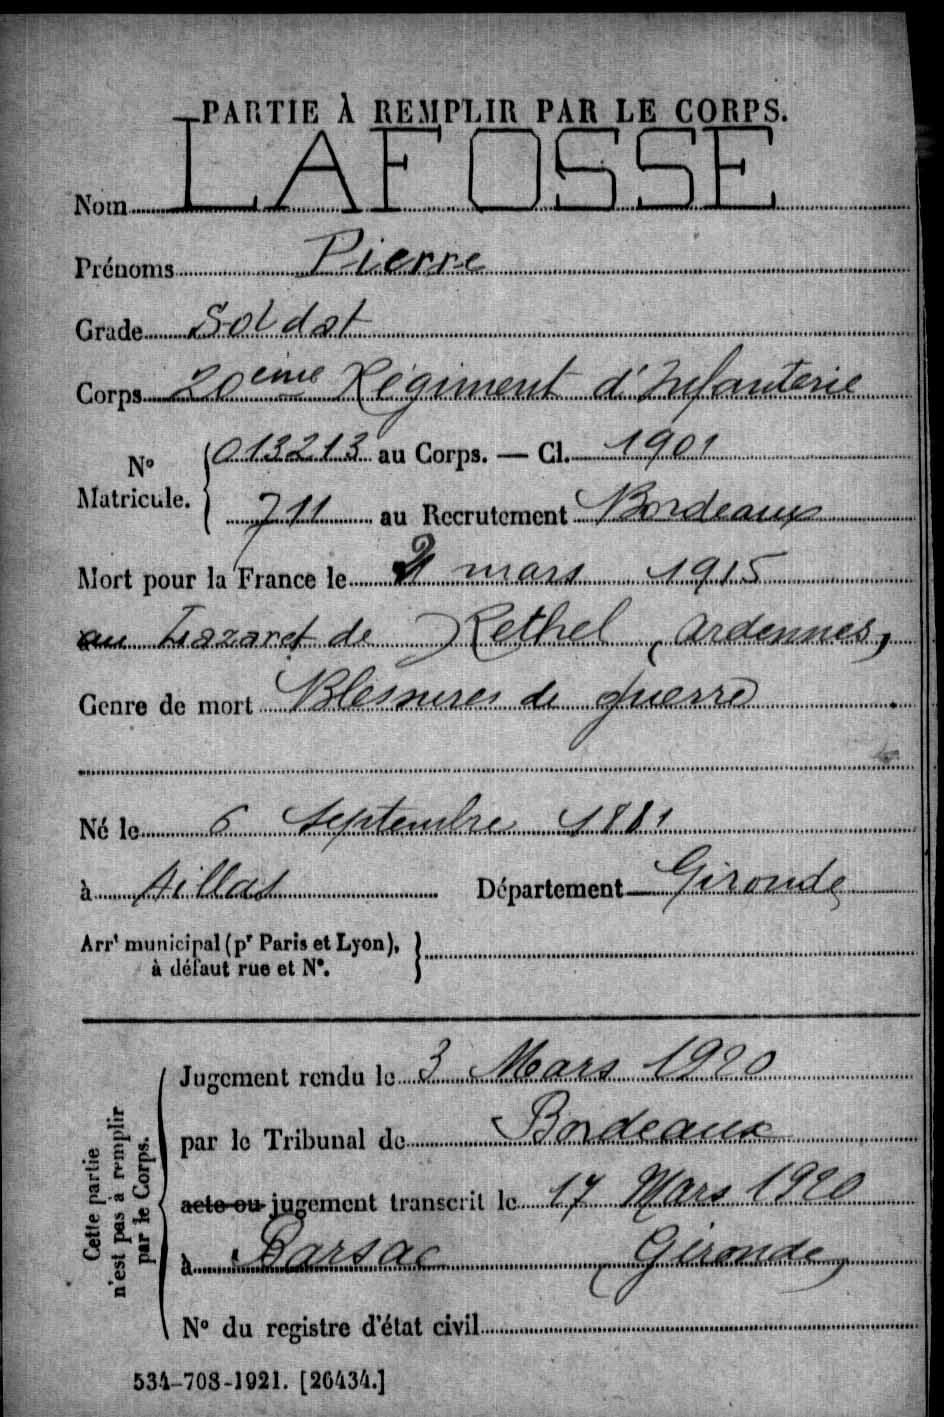 PARTIE À REMPLIR PAR LE CORPS.
Nom LAFOSSE
Prénoms Pierre
Grade Soldat
Corps 20ème Régiment d'Infanterie
N° Matricule. { 013213 au Corps. — Cl. 1901
711 au Recrutement Bordeaux
Mort pour la France le 2 mars 1915
au Lazaret de Rethel (Ardennes)
Genre de mort Blessures de guerre
Né le 6 Septembre 1881
à Aillas Département Gironde
Arr^t municipal (p^r Paris et Lyon),
à défaut rue et N°. }
Cette partie n'est pas à remplir par le Corps.
Jugement rendu le 3 Mars 1920
par le Tribunal de Bordeaux
acte ou jugement transcrit le 17 Mars 1920
à Barsac (Gironde)
N° du registre d'état civil
534-708-1921. [26434.]